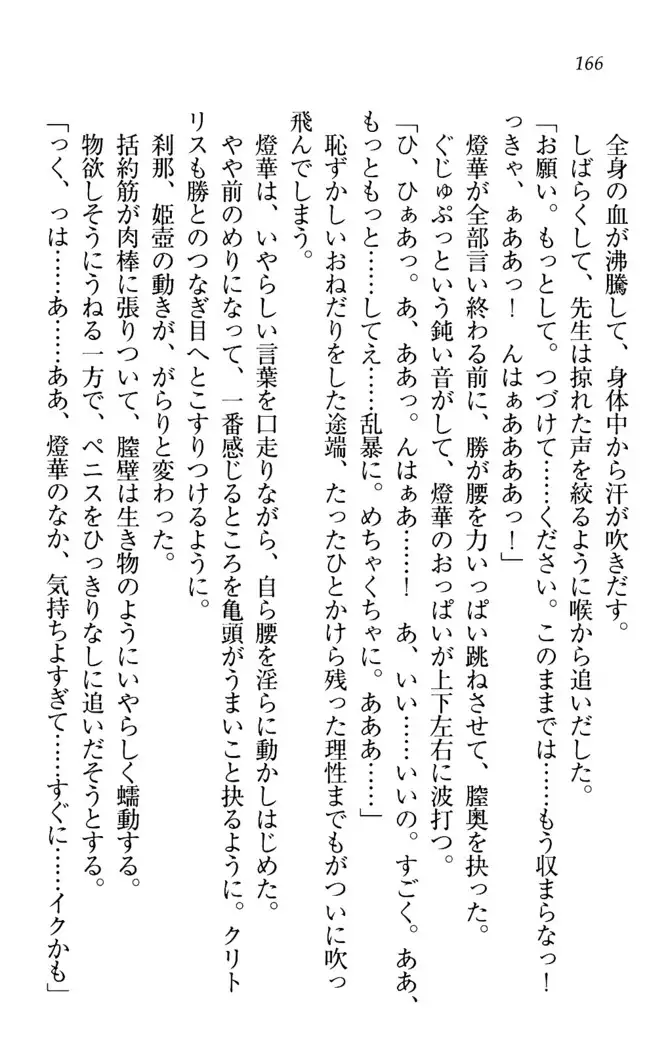 166
全身の血が沸騰して、身体中から汗が吹きだす。
しばらくして、先生は掠れた声を絞るように喉から追いだした。
「お願い。もっとして。つづけて……ください。このままでは……もう収まらなっ！
っきゃ、ぁああっ！　んはぁああああっ！」
燈華が全部言い終わる前に、勝が腰を力いっぱい跳ねさせて、膣奥を抉った。
ぐじゅぷっという鈍い音がして、燈華のおっぱいが上下左右に波打つ。
「ひ、ひぁあっ。あ、ああっ。んはぁあ……！　あ、いい……いいの。すごく。ああ、
もっともっと……してえ……乱暴に。めちゃくちゃに。あああ……」
恥ずかしいおねだりをした途端、たったひとかけら残った理性までもがついに吹っ
飛んでしまう。
燈華は、いやらしい言葉を口走りながら、自ら腰を淫らに動かしはじめた。
やや前のめりになって、一番感じるところを亀頭がうまいこと抉るように。クリト
リスも勝とのつなぎ目へとこすりつけるように。
刹那、姫壺の動きが、がらりと変わった。
括約筋が肉棒に張りついて、膣壁は生き物のようにいやらしく蠕動する。
物欲しそうにうねる一方で、ペニスをひっきりなしに追いだそうとする。
「っく、っは……あ……ああ、燈華のなか、気持ちよすぎて……すぐに……イクかも」